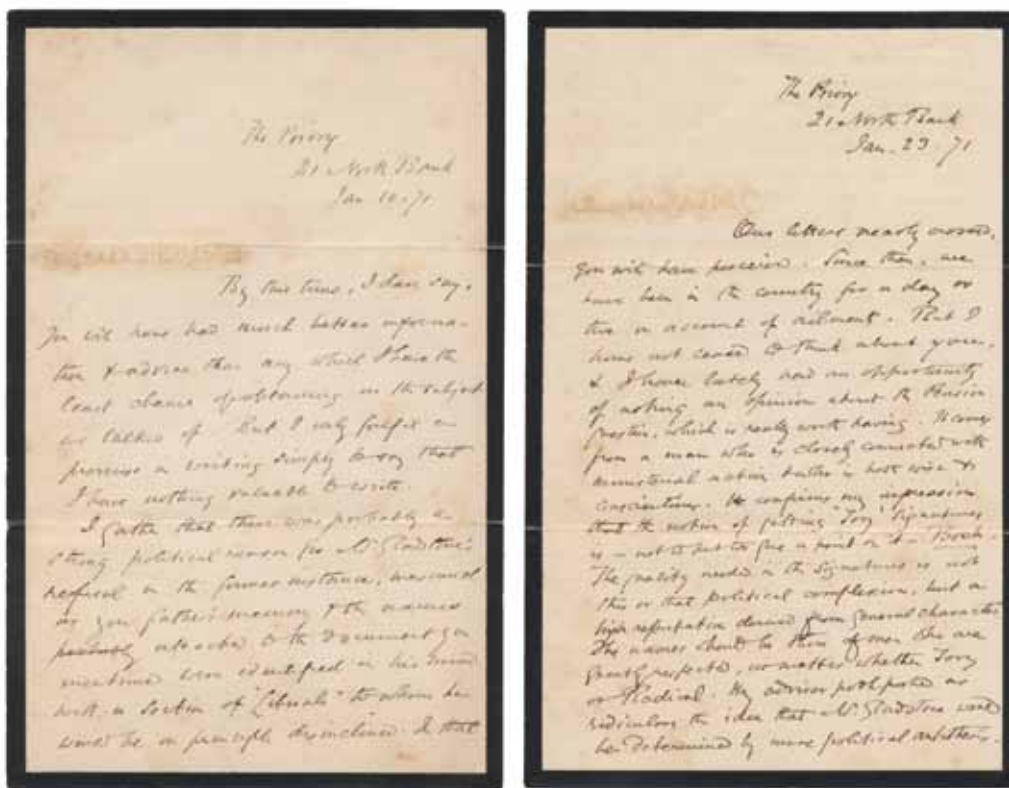 The Priory
21 North Bank
Jan 10. 71
By this time, I dare say,
you will have had much better informa-
tion & advice than any which I have the
least chance of obtaining on the subject
we talked of. But I only fulfil a
promise in writing simply to say that
I have nothing valuable to write.
I gather that there was probably a
strong political reason for Mr Gladstone's
refusal in the former instance, inasmuch
as your father's memory & the names
probably attached to the document you
mentioned were identified in his mind
with a section of "Liberals" to whom he
would be on principle disinclined. I that
The Priory
21 North Bank
Jan. 23. 71
Our letters nearly crossed,
you will have perceived. Since then, we
have been in the country for a day or
two on account of ailment. But I
have not ceased to think about you,
& I have lately had an opportunity
of asking an opinion about the Pension
question, which is really worth having. It comes
from a man who is closely connected with
ministerial action & who is both wise &
conscientious. He confirms my impression
that the notion of getting "Tory" signatures
is – not to put too fine a point on it – Bosh.
The quality needed in the signatures is not
this or that political complexion, but a
high reputation derived from general character
The names should be those of men who are
greatly respected, no matter whether Tory
or Radical. My adviser pooh poohed as
ridiculous the idea that Mr Gladstone would
be determined by mere political antithesis.